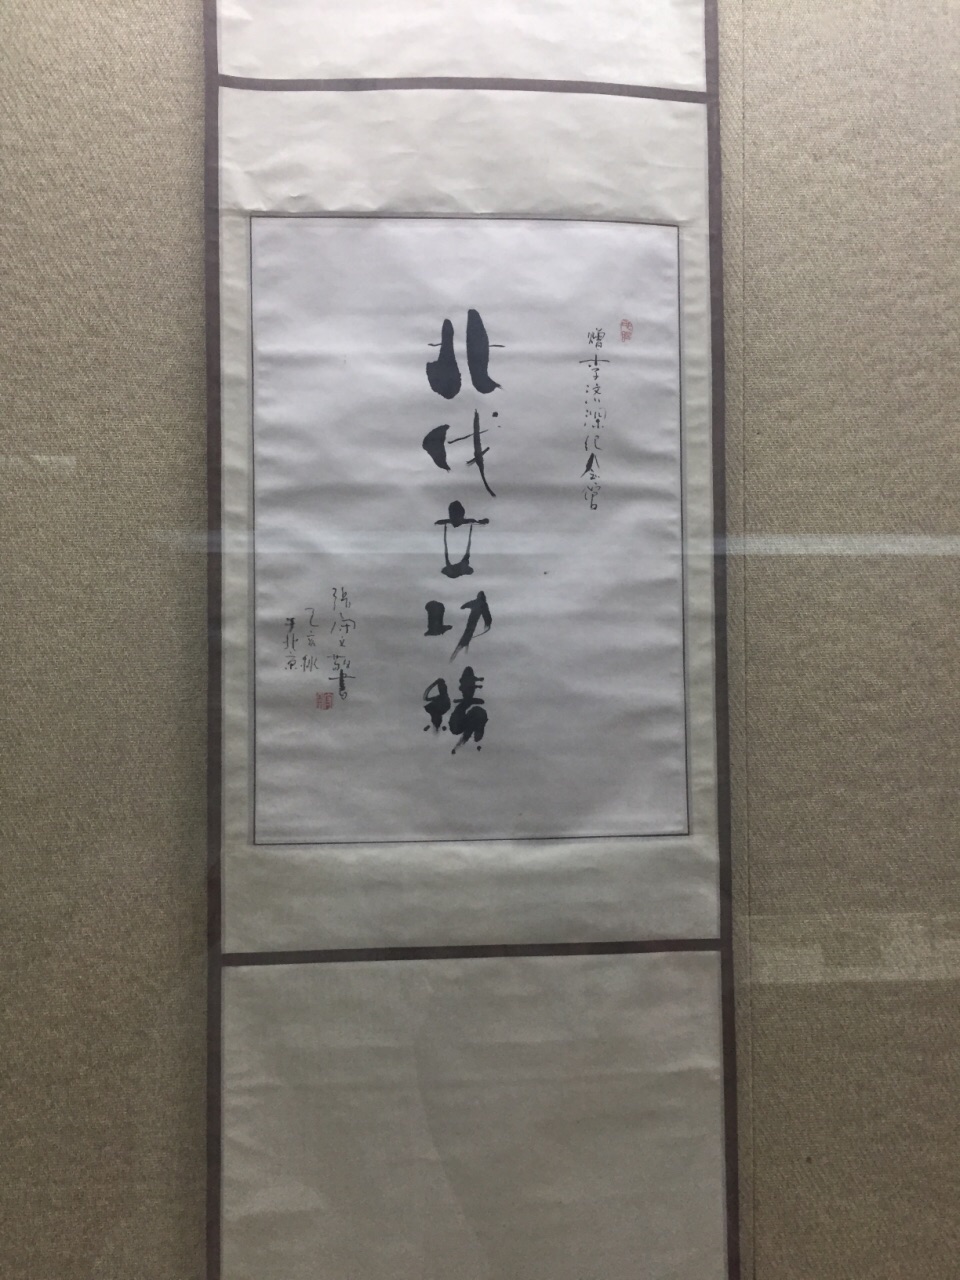 赠李济深纪念馆
北伐立功績
張开文敬書
乙亥秋
于北京